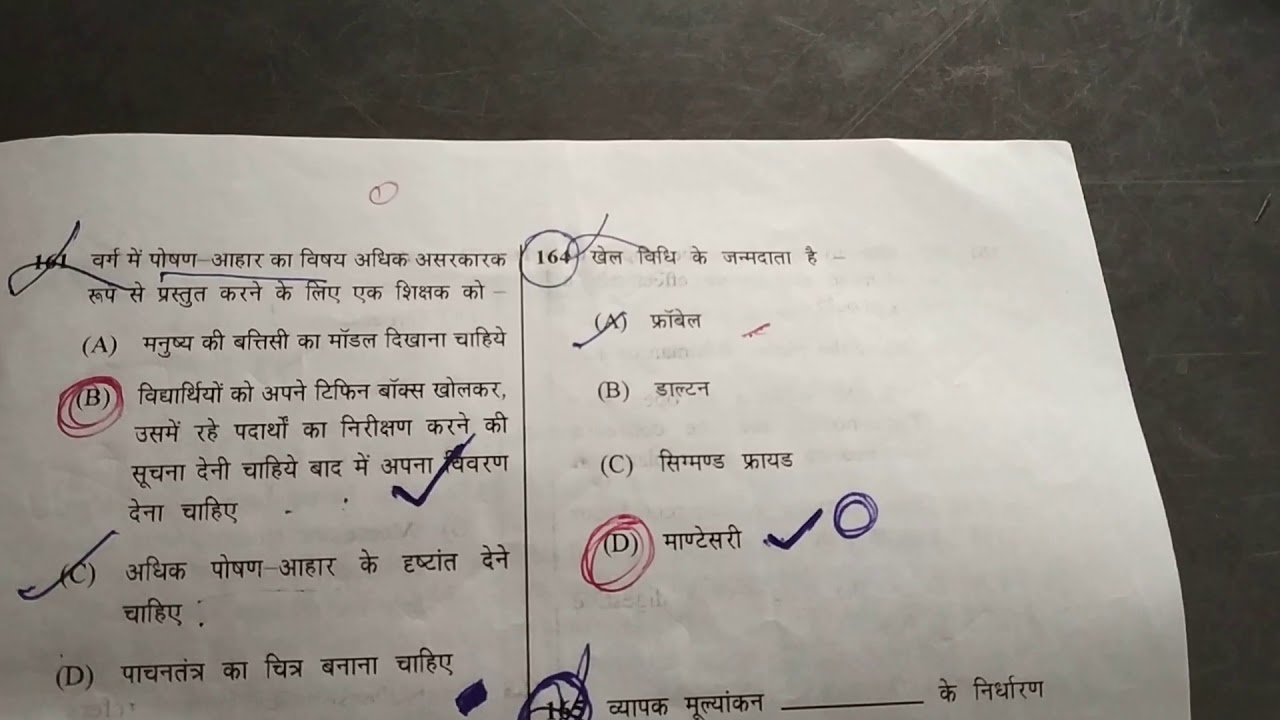 161 वर्ग में पोषण-आहार का विषय अधिक असरकारक
रूप से प्रस्तुत करने के लिए एक शिक्षक को -
(A) मनुष्य की बत्तिसी का मॉडल दिखाना चाहिये
(B) विद्यार्थियों को अपने टिफिन बॉक्स खोलकर,
उसमें रहे पदार्थों का निरीक्षण करने की
सूचना देनी चाहिये बाद में अपना विवरण
देना चाहिए
(C) अधिक पोषण-आहार के दृष्टांत देने
चाहिए
(D) पाचनतंत्र का चित्र बनाना चाहिए
164 खेल विधि के जन्मदाता है -
(A) फ्रॉबेल
(B) डाल्टन
(C) सिग्मण्ड फ्रायड
(D) माण्टेसरी
165 व्यापक मूल्यांकन __________ के निर्धारण